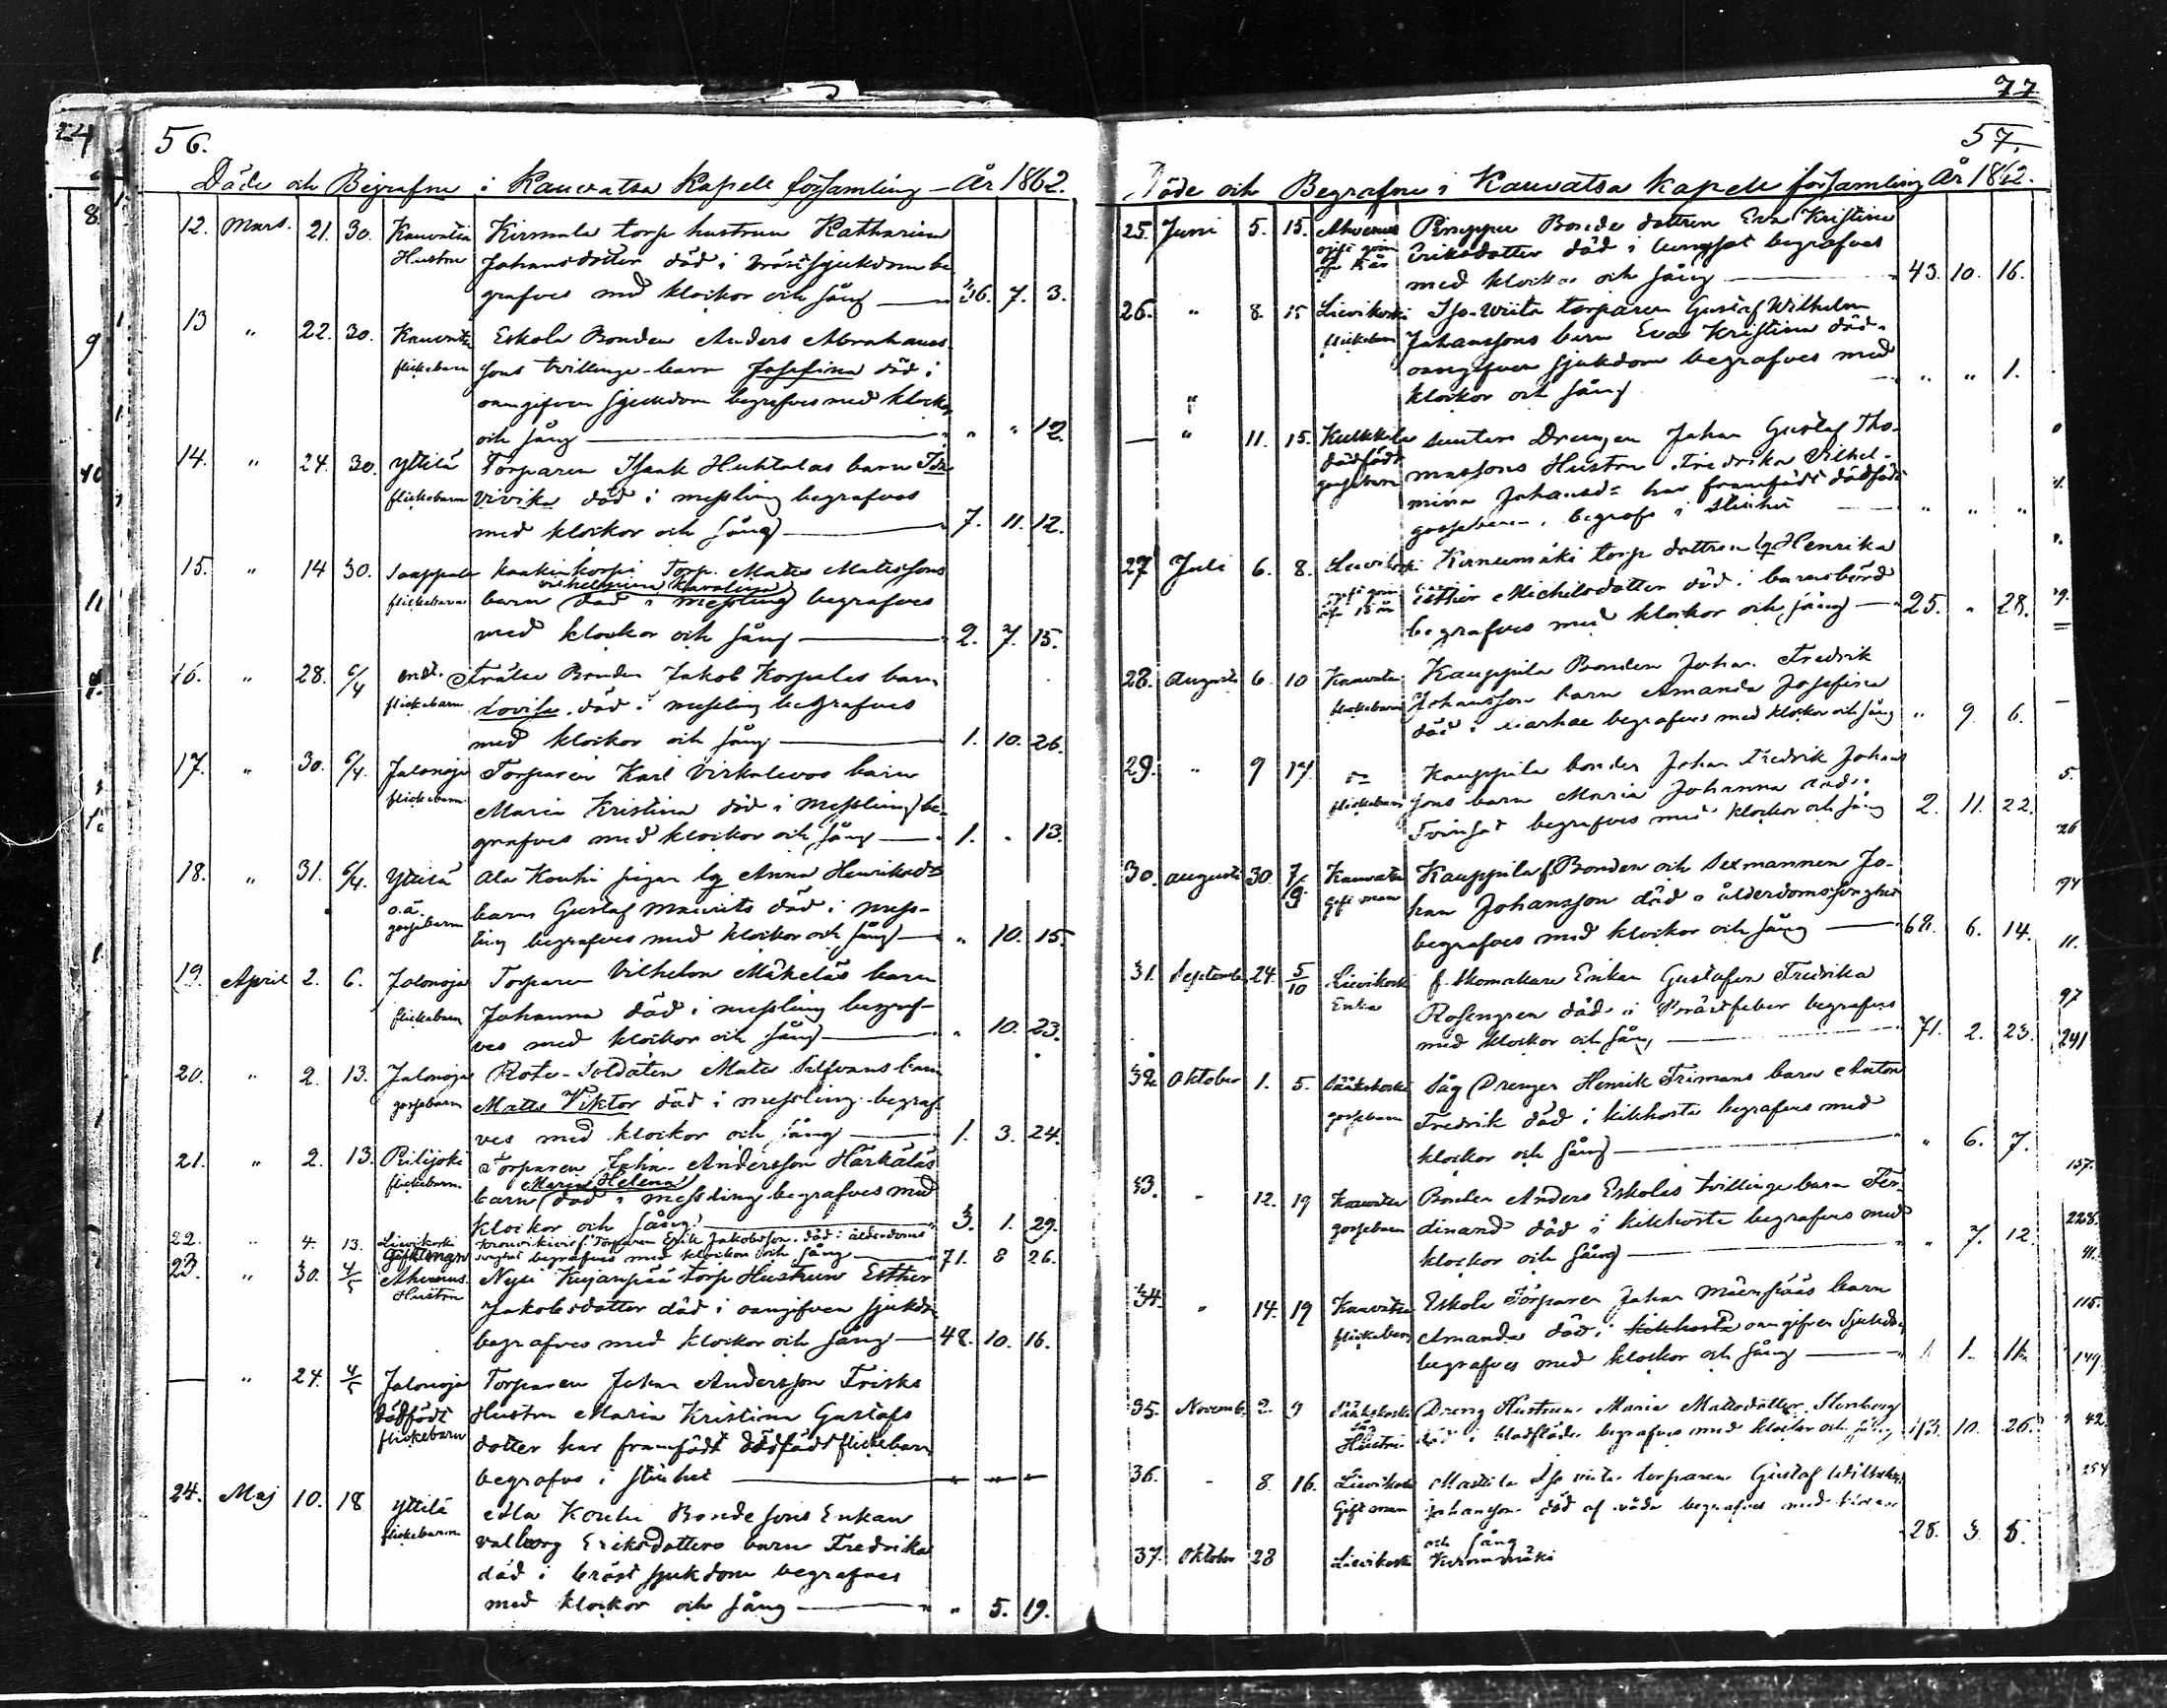 56.
Döde och Begrafne i Kauvatsa Kapell församling – År 1862.
12. Mars. 21. 30. Kauvatsa Hustru
Kirmula torp hustrun Katharina
Johansdotter död i bröstsjukdom be
grafves med klockor och sång 36. 7. 3.
13 " 22. 30. Kauvatsa flickebarn
Eskola Bonden Anders Abrahams
sons tvillinge-barn Josefina död i
oangifven sjukdom begrafves med klockor
och sång " " 12.
14. " 24. 30. Yttilä flickebarn
Torparen Isaak Huhtalas barn Ida
Vivika död i messling begrafves
med klockor och sång 7. 11. 12.
15. " 14 30. flickebarn
Torp. Matts Mattssons
Vilhelmina Karolina
barn död i messling begrafves
med klockor och sång 2. 7. 15.
16. " 28. 6/4 flickebarn
Bonden Jakob Korpelas barn
Lovisa död i messling begrafves
med klockor och sång 1. 10. 26.
17. " 30. 6/4. Jalonoja flickebarn
Torparen Karl Virkalevos barn
Maria Kristina död i messling be-
grafves med klockor och sång 1. " 13.
18. " 31. 6/4. Yttilä o.ä. gossebarn
Ala Kouhi pigan Anna Henriksd:s
barn Gustaf Maurits död i mess-
ling begrafves med klockor och sång " 10. 15.
19. April 2. 6. Jalonoja flickebarn
Torparen Vilhelm Mäkeläs barn
Johanna död i messling begraf-
ves med klockor och sång " 10. 23.
20. " 2. 13. Jalonoja gossebarn
Rote-Soldaten Matts barn
Matts Viktor död i messling begraf
ves med klockor och sång 1. 3. 24.
21. " 2. 13. Piilijoki flickebarn
Torparen Johan Andersson Härkäläs
Maria Helena
barn död i messling begrafves med
klockor och sång 3. 1. 29.
22. " 4. 13. Lievikoski Gift man
Torparen Erik Jakobsson död i ålderdoms
begrafves med klockor och sång 71. 8 26.
23. " 30. 4/5 Ahvenus Hustru
Nyyli Kujanpää torp Hustrun Esther
Jakobsdotter död i oangifven sjukdo
begrafves med klockor och sång 48. 10. 16.
— " 24. 4/5 Jalonoja dödfödt flickebarn
Torparen Johan Andersson Frisks
Hustru Maria Kristina Gustafs
dotter har framfödt dödfödt flickebarn
begrafvs i stillhet " " "
24. Maj 10. 18 Yttilä flickebarn
Ala Kouhi Bondesons Enkan
Valborg Eriksdotters barn Fredrika
död i bröst sjukdom begrafves
med klockor och sång " 5. 19.
77
57.
Döde och Begrafne i Kauvatsa Kapell församling År 1862.
25. Juni 5. 15. Ahvenus
Bonde dottren Eva Kristina
Eriksdotter död i lungsot begrafves
med klockor och sång 43. 10. 16.
26. " 8. 15 Lievikoski flickebarn
Iso-Wiita torparen Gustaf Wilhelm
Johanssons barn Eva Kristina död
oangifven sjukdom begrafves med
klockor och sång " " 1.
— " 11. 15. Kulkkila dödfödt gossebarn
Drengen Johan Gustaf Tho-
massons Hustru Fredrika Vilhel-
mina Johansd:r har framfödt dödfödt
gossebarn, begrafs i stillhet " " "
27 Juli 6. 8. Lievikoski
torp dottren Henrika
Esther Michelsdotter död i barnsbörd
begrafves med klockor och sång 25. " 28.
28. Augusti 6 10 Kauvatsa flickebarn
Kauppila Bonden Johan Fredrik
Johansson barn Amanda Josefina
död i diarhae begrafves med klockor och sång " 9. 6.
29. " 9 17. flickebarn
Kauppila bonden Johan Fredrik Johans
sons barn Maria Johanna död i
begrafves med klockor och sång 2. 11. 22.
30. Augusti 30 7/9. Kauvatsa Gift man
Kauppila f. Bonden och Sexmannen Jo-
han Johansson död i
begrafves med klockor och sång 68. 6. 14.
31. September 24. 5/10 Lievikoski Enka
f. Skomakare Enkan Gustafva Fredrika
Rosengren död i begrafves
med klockor och sång 71. 2. 23.
32. Oktober 1. 5. Sääkskoski gossebarn
Såg Drengen Henrik Frimans barn Anton
Fredrik död i kikhosta begrafves med
klockor och sång " 6. 7.
33. " 12. 19 Kauvatsa gossebarn
Bonden Anders Eskolas tvillinge barn Fer-
dinand död i kikhosta begrafves med
klockor och sång " 7. 12.
34. " 14. 19 Kauvatsa flickebarn
Eskola Torparen Johan Mäenpääs barn
Amanda död i kikhosta oangifven sjukdom
begrafves med klockor och sång 1. 1. 11.
35. Novemb. 2. 9 Sääkskoski såg Hustru
Dreng Hustrun Maria Mattsdotter Stenberg
död i begrafves med klockor och sång 43. 10. 26.
36. " 8. 16. Lievikoski Gift man
Mattila Iso viita torparen Gustaf Wilhelm
Johansson död af våda begrafves med klockor
och sång 28. 3. 5.
37. Oktober 28 Lievikoski